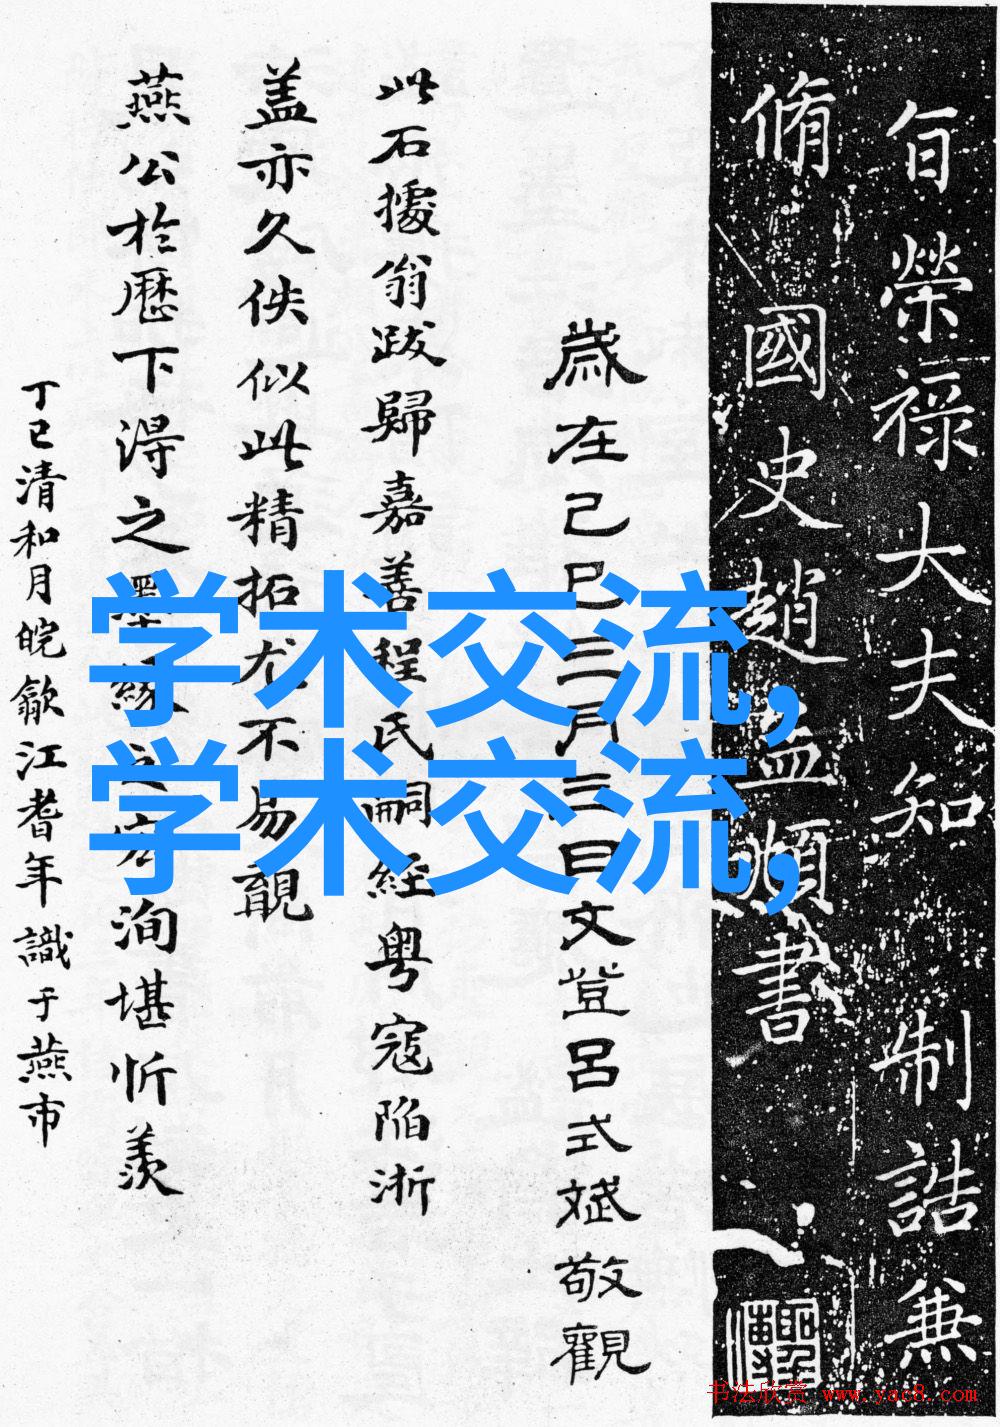 旨榮祿大夫知制誥兼
脩國史趙孟頫書
歲在己巳三月三日文登呂式斌敬觀
此石據翁跋歸嘉善程氏嗣經粵寇陷浙
盖亦久佚似此精拓尤不易覯
燕公於歷下得之墨緣之洵堪忻羨
丁巳清和月皖歙江耆年識于燕市
学术交流,
学术交流,
书法欣赏 www.yac8.com